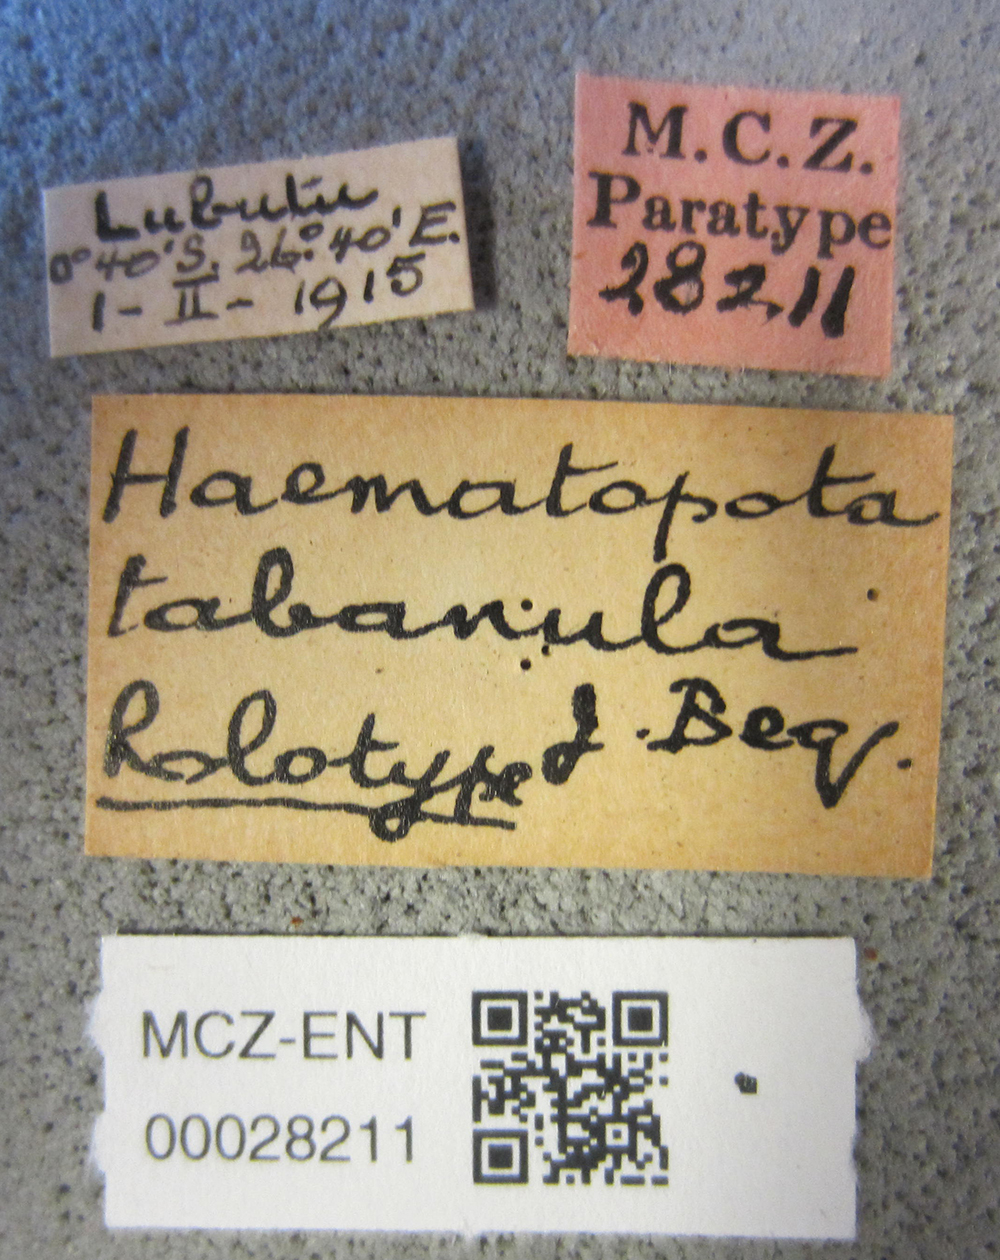 Lubutu
0°40'S. 26°40'E.
1-II-1915
M.C.Z.
Paratype
28211
Haematopota
tabanula
holotype J. Beq.
MCZ-ENT
00028211